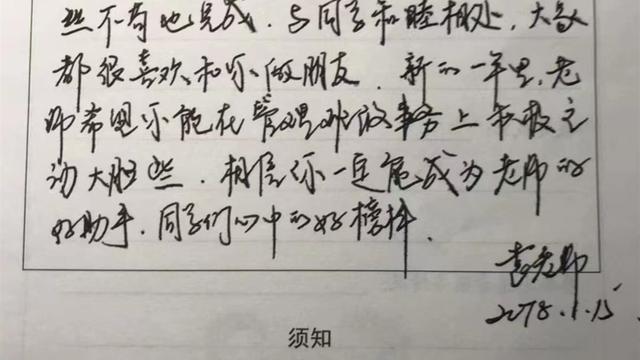 丝不苟地完成．与同学和睦相处，大家
都很喜欢和你做朋友．新的一年里，老
师希望你能在管理班级事务上积极主
动大胆些．相信你一定能成为老师的
好助手，同学们心中的好榜样．
老师
2018.1.15
须知